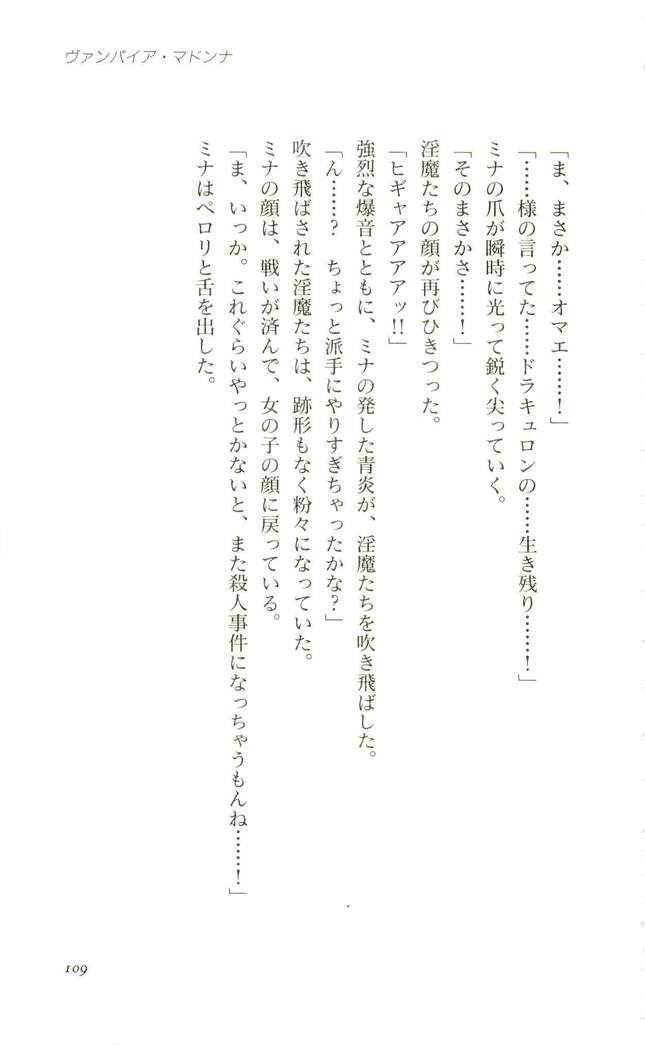 ヴァンパイア・マドンナ
「ま、まさか……オマエ……!」
「……様の言ってた……ドラキュロンの……生き残り……!」
ミナの爪が瞬時に光って鋭く尖っていく。
「そのまさかさ……!」
淫魔たちの顔が再びひきつった。
「ヒギャアアアアッ!!」
強烈な爆音とともに、ミナの発した青炎が、淫魔たちを吹き飛ばした。
「ん……? ちょっと派手にやりすぎちゃったかな?」
吹き飛ばされた淫魔たちは、跡形もなく粉々になっていた。
ミナの顔は、戦いが済んで、女の子の顔に戻っている。
「ま、いっか。これぐらいやっとかないと、また殺人事件になっちゃうもんね……!」
ミナはペロリと舌を出した。
109